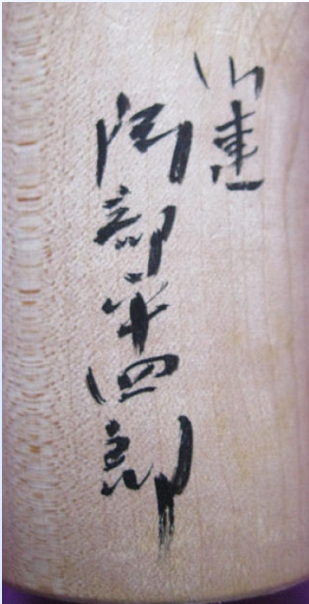 小連
阿部平四郎